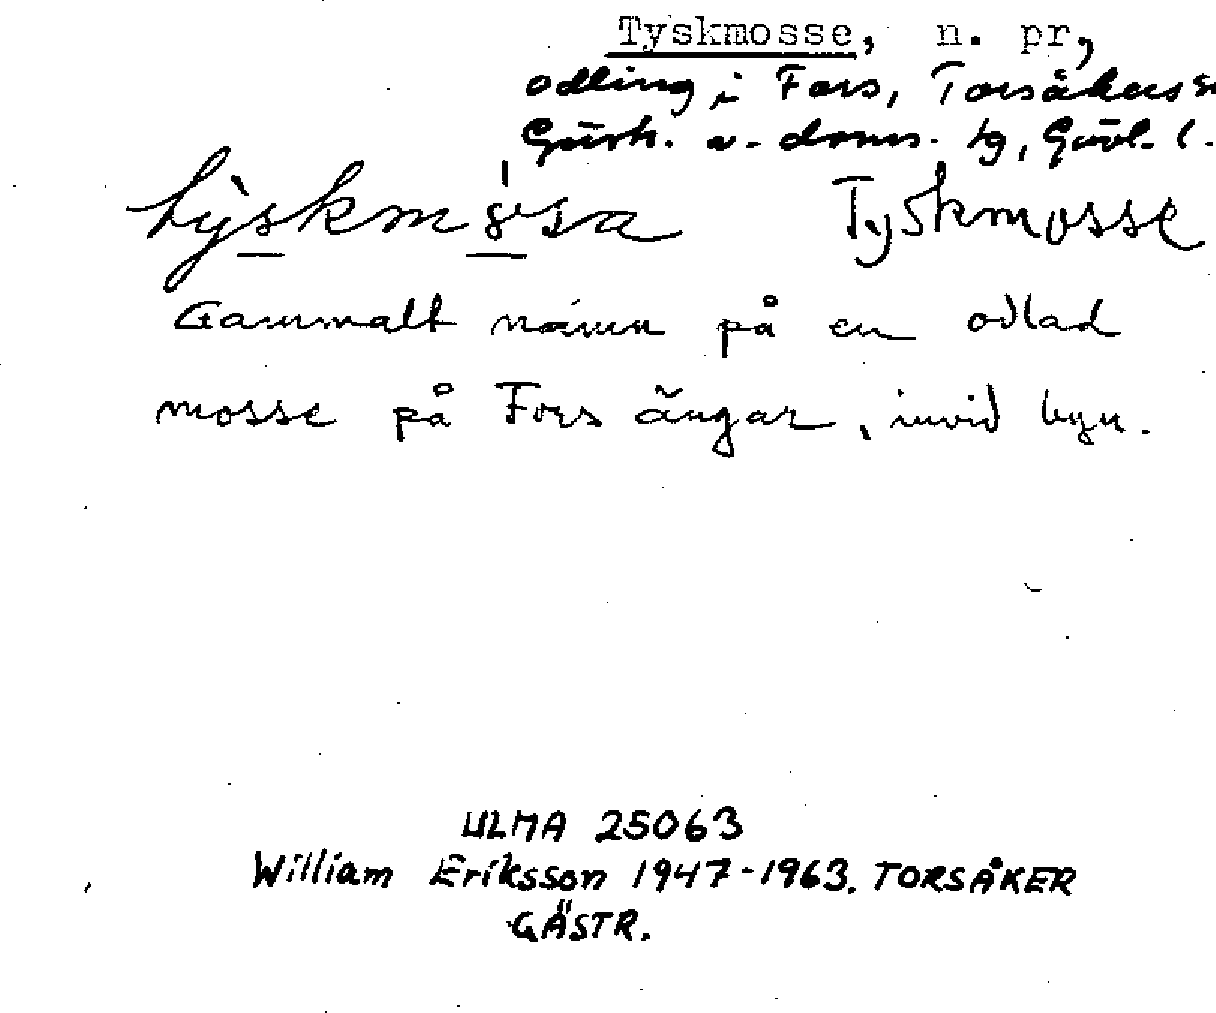 Tyskmosse, n. pr,
odling i Fors, Torsåkers sn
Gästr. v. doms. tg, Gävl. l.
Tyskmosse
Gammalt namn på en odlad
mosse på Fors ängar, invid byn.
ULMA 25063
William Eriksson 1947-1963. TORSÅKER
GÄSTR.